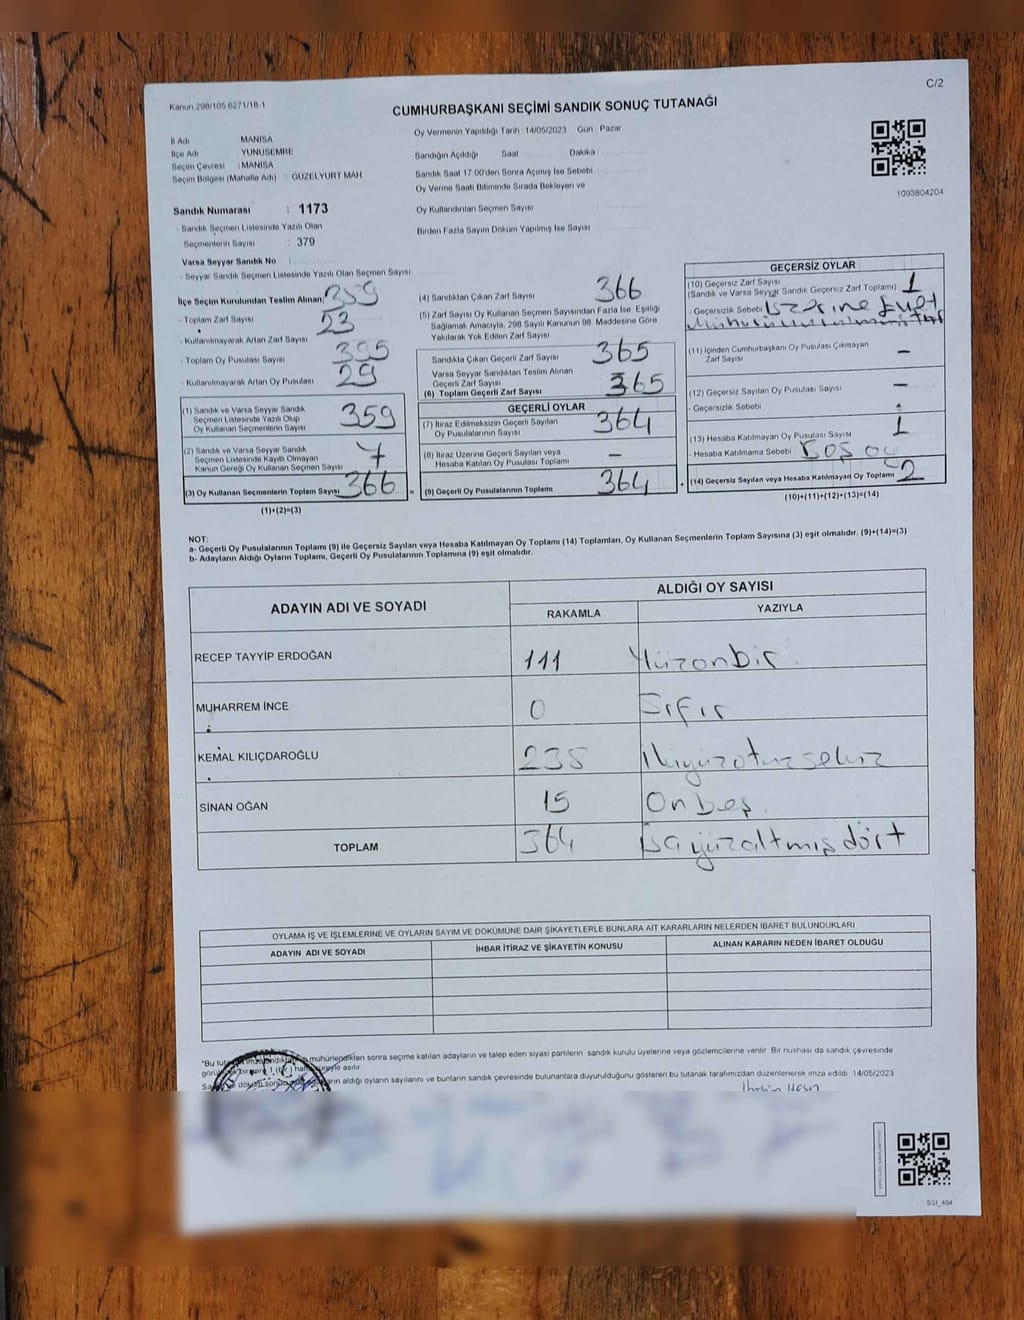 Kanun 298/105 6271/18-1
C/2
CUMHURBAŞKANI SEÇİMİ SANDIK SONUÇ TUTANAĞI
İl Adı MANİSA
İlçe Adı YUNUSEMRE
Seçim Çevresi : MANİSA
Seçim Bölgesi (Mahalle Adı) GÜZELYURT MAH
Sandık Numarası : 1173
- Sandık Seçmen Listesinde Yazılı Olan
Seçmenlerin Sayısı : 379
Varsa Seyyar Sandık No
- Seyyar Sandık Seçmen Listesinde Yazılı Olan Seçmen Sayısı
Oy Vermenin Yapıldığı Tarih 14/05/2023 Gün Pazar
Sandığın Açıldığı Saat Dakika
Sandık Saat 17 00'den Sonra Açımış İse Sebebi
Oy Verme Saati Bitiminde Sırada Bekleyen ve
Oy Kullandırılan Seçmen Sayısı
Birden Fazla Sayım Döküm Yapılmış İse Sayısı
1093804204
İlçe Seçim Kurulundan Teslim Alınan; 359
- Toplam Zarf Sayısı 23
- Kullanılmayarak Artan Zarf Sayısı
- Toplam Oy Pusulası Sayısı 395
- Kullanılmayarak Artan Oy Pusulası 29
(1) Sandık ve Varsa Seyyar Sandık
Seçmen Listesinde Yazılı Olup
Oy Kullanan Seçmenlerin Sayısı 359
(2) Sandık ve Varsa Seyyar Sandık
Seçmen Listesinde Kayıtlı Olmayan
Kanun Gereği Oy Kullanan Seçmen Sayısı 7
(3) Oy Kullanan Seçmenlerin Toplam Sayısı 366
(1)+(2)=(3)
(4) Sandıktan Çıkan Zarf Sayısı 366
(5) Zarf Sayısı Oy Kullanan Seçmen Sayısından Fazla İse, Eşitliği
Sağlamak Amacıyla, 298 Sayılı Kanunun 98. Maddesine Göre
Yakılarak Yok Edilen Zarf Sayısı
Sandıkta Çıkan Geçerli Zarf Sayısı 365
Varsa Seyyar Sandıktan Teslim Alınan
Geçerli Zarf Sayısı
(6) Toplam Geçerli Zarf Sayısı 365
GEÇERLİ OYLAR
(7) İtiraz Edilmeksizin Geçerli Sayılan
Oy Pusulalarının Sayısı 364
(8) İtiraz Üzerine Geçerli Sayılan veya
Hesaba Katılan Oy Pusulası Toplamı —
= (9) Geçerli Oy Pusulalarının Toplamı 364
GEÇERSİZ OYLAR
(10) Geçersiz Zarf Sayısı
(Sandık ve Varsa Seyyar Sandık Geçersiz Zarf Toplamı) 1
- Geçersizlik Sebebi üzerine
(11) İçinden Cumhurbaşkanı Oy Pusulası Çıkmayan
Zarf Sayısı —
(12) Geçersiz Sayılan Oy Pusulası Sayısı —
- Geçersizlik Sebebi
(13) Hesaba Katılmayan Oy Pusulası Sayısı 1
- Hesaba Katılmama Sebebi BOŞ OY
+ (14) Geçersiz Sayılan veya Hesaba Katılmayan Oy Toplamı 2
(10)+(11)+(12)+(13)=(14)
NOT:
a- Geçerli Oy Pusulalarının Toplamı (9) ile Geçersiz Sayılan veya Hesaba Katılmayan Oy Toplamı (14) Toplamları, Oy Kullanan Seçmenlerin Toplam Sayısına (3) eşit olmalıdır. (9)+(14)=(3)
b- Adayların Aldığı Oyların Toplamı, Geçerli Oy Pusulalarının Toplamına (9) eşit olmalıdır.
ADAYIN ADI VE SOYADI ALDIĞI OY SAYISI
RAKAMLA YAZIYLA
RECEP TAYYİP ERDOĞAN 111 Yüzonbir
MUHARREM İNCE 0 Sıfır
KEMAL KILIÇDAROĞLU 238 ikiyüzotuzsekiz
SİNAN OĞAN 15 Onbeş
TOPLAM 364 üçyüzaltmışdört
OYLAMA İŞ VE İŞLEMLERİNE VE OYLARIN SAYIM VE DÖKÜMÜNE DAİR ŞİKAYETLERLE BUNLARA AİT KARARLARIN NELERDEN İBARET BULUNDUKLARI
ADAYIN ADI VE SOYADI İHBAR İTİRAZ VE ŞİKAYETİN KONUSU ALINAN KARARIN NEDEN İBARET OLDUĞU
mühürlendikten sonra seçime katılan adayların ve talep eden siyasi partilerin sandık kurulu üyelerine veya gözlemcilerine verilir. Bir nüshası da sandık çevresinde
asılır.
aldığı oyların sayılarını ve bunların sandık çevresinde bulunanlara duyurulduğunu gösteren bu tutanak tarafımızdan düzenlenerek imza edildi. 14/05/2023
SSI_404